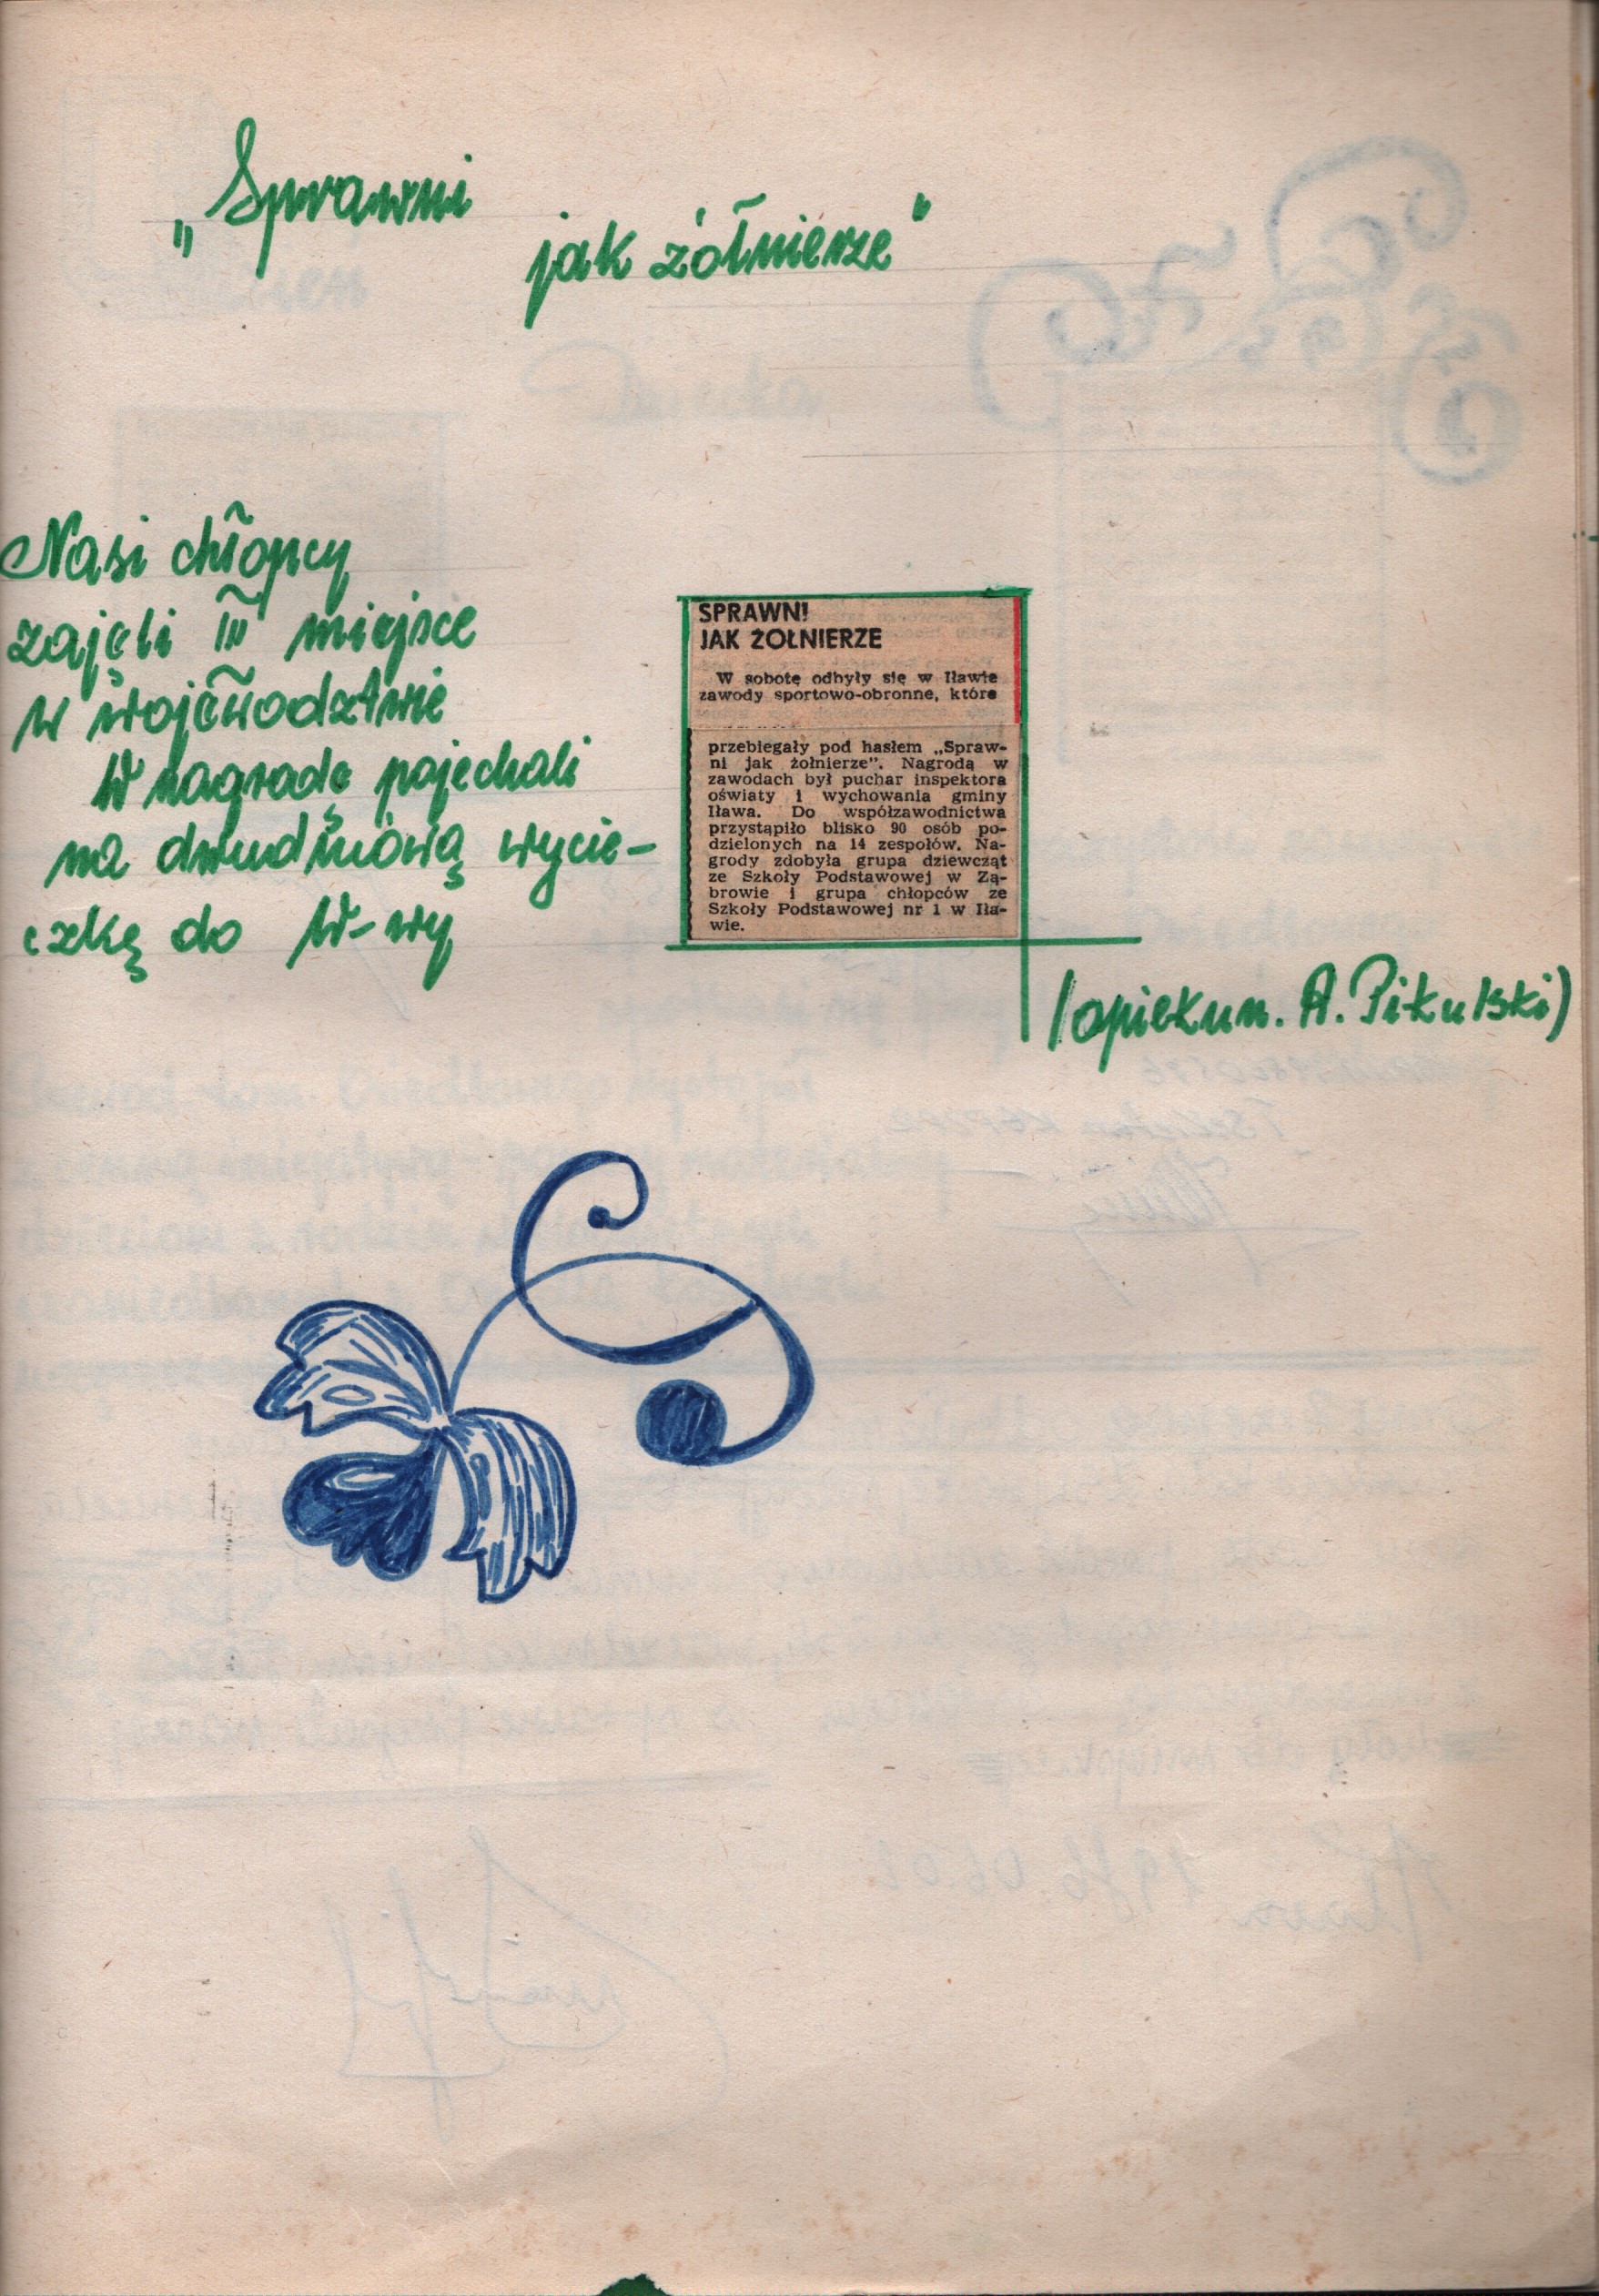 „Sprawni
jak żołnierze"
Nasi chłopcy
zajęli III miejsce
w województwie
W nagrodę pojechali
na dwudniową wycie-
czkę do W-wy
SPRAWNI
JAK ŻOŁNIERZE
W sobotę odbyły się w Iławie
zawody sportowo-obronne, które
przebiegały pod hasłem „Spraw-
ni jak żołnierze". Nagrodą w
zawodach był puchar inspektora
oświaty i wychowania gminy
Iława. Do współzawodnictwa
przystąpiło blisko 90 osób po-
dzielonych na 14 zespołów. Na-
grody zdobyła grupa dziewcząt
ze Szkoły Podstawowej w Zą-
browie i grupa chłopców ze
Szkoły Podstawowej nr 1 w Iła-
wie.
(opiekun. A. Pikulski)